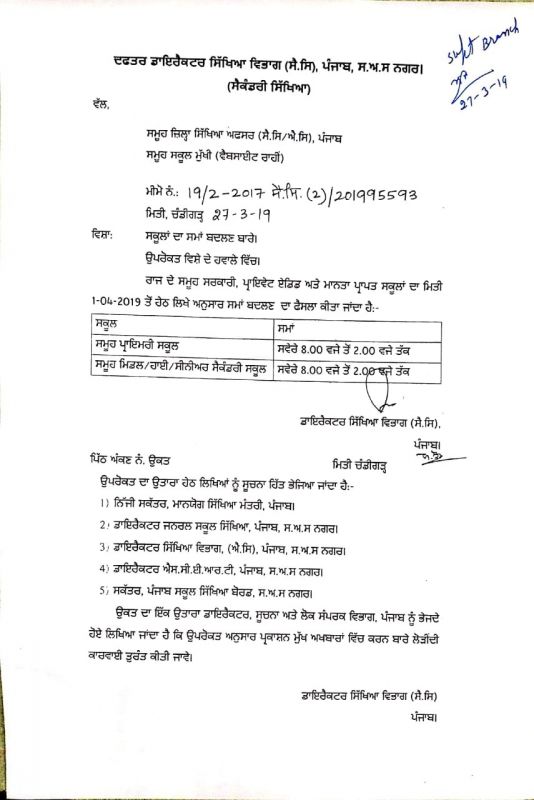 Supt Branch
27-3-19
ਦਫਤਰ ਡਾਇਰੈਕਟਰ ਸਿੱਖਿਆ ਵਿਭਾਗ (ਸੈ.ਸਿ), ਪੰਜਾਬ, ਸ.ਅ.ਸ ਨਗਰ।
(ਸੈਕੰਡਰੀ ਸਿੱਖਿਆ)
ਵੱਲ,
ਸਮੂਹ ਜ਼ਿਲ੍ਹਾ ਸਿੱਖਿਆ ਅਫਸਰ (ਸੈ.ਸਿ/ਐ.ਸਿ), ਪੰਜਾਬ
ਸਮੂਹ ਸਕੂਲ ਮੁੱਖੀ (ਵੈਬਸਾਈਟ ਰਾਹੀਂ)
ਮੀਮੋ ਨੰ.: 19/2-2017 ਸੈ.ਸਿ. (2)/201995593
ਮਿਤੀ, ਚੰਡੀਗੜ੍ਹ 27-3-19
ਵਿਸ਼ਾ: ਸਕੂਲਾਂ ਦਾ ਸਮਾਂ ਬਦਲਣ ਬਾਰੇ।
ਉਪਰੋਕਤ ਵਿਸ਼ੇ ਦੇ ਹਵਾਲੇ ਵਿੱਚ।
ਰਾਜ ਦੇ ਸਮੂਹ ਸਰਕਾਰੀ, ਪ੍ਰਾਇਵੇਟ ਏਡਿਡ ਅਤੇ ਮਾਨਤਾ ਪ੍ਰਾਪਤ ਸਕੂਲਾਂ ਦਾ ਮਿਤੀ
1-04-2019 ਤੋਂ ਹੇਠ ਲਿਖੇ ਅਨੁਸਾਰ ਸਮਾਂ ਬਦਲਣ ਦਾ ਫੈਸਲਾ ਕੀਤਾ ਜਾਂਦਾ ਹੈ:-
ਸਕੂਲ ਸਮਾਂ
ਸਮੂਹ ਪ੍ਰਾਇਮਰੀ ਸਕੂਲ ਸਵੇਰੇ 8.00 ਵਜੇ ਤੋਂ 2.00 ਵਜੇ ਤੱਕ
ਸਮੂਹ ਮਿਡਲ/ਹਾਈ/ਸੀਨੀਅਰ ਸੈਕੰਡਰੀ ਸਕੂਲ ਸਵੇਰੇ 8.00 ਵਜੇ ਤੋਂ 2.00 ਵਜੇ ਤੱਕ
ਡਾਇਰੈਕਟਰ ਸਿੱਖਿਆ ਵਿਭਾਗ (ਸੈ.ਸਿ),
ਪੰਜਾਬ।
ਪਿੱਠ ਅੰਕਣ ਨੰ. ਉਕਤ ਮਿਤੀ ਚੰਡੀਗੜ੍ਹ
ਉਪਰੋਕਤ ਦਾ ਉਤਾਰਾ ਹੇਠ ਲਿਖਿਆਂ ਨੂੰ ਸੂਚਨਾ ਹਿੱਤ ਭੇਜਿਆ ਜਾਂਦਾ ਹੈ:-
1) ਨਿੱਜੀ ਸਕੱਤਰ, ਮਾਨਯੋਗ ਸਿੱਖਿਆ ਮੰਤਰੀ, ਪੰਜਾਬ।
2) ਡਾਇਰੈਕਟਰ ਜਨਰਲ ਸਕੂਲ ਸਿੱਖਿਆ, ਪੰਜਾਬ, ਸ.ਅ.ਸ ਨਗਰ।
3) ਡਾਇਰੈਕਟਰ ਸਿੱਖਿਆ ਵਿਭਾਗ, (ਐ.ਸਿ), ਪੰਜਾਬ, ਸ.ਅ.ਸ ਨਗਰ।
4) ਡਾਇਰੈਕਟਰ ਐਸ.ਸੀ.ਈ.ਆਰ.ਟੀ, ਪੰਜਾਬ, ਸ.ਅ.ਸ ਨਗਰ।
5) ਸਕੱਤਰ, ਪੰਜਾਬ ਸਕੂਲ ਸਿੱਖਿਆ ਬੋਰਡ, ਸ.ਅ.ਸ ਨਗਰ।
ਉਕਤ ਦਾ ਇੱਕ ਉਤਾਰਾ ਡਾਇਰੈਕਟਰ, ਸੂਚਨਾ ਅਤੇ ਲੋਕ ਸੰਪਰਕ ਵਿਭਾਗ, ਪੰਜਾਬ ਨੂੰ ਭੇਜਦੇ
ਹੋਏ ਲਿਖਿਆ ਜਾਂਦਾ ਹੈ ਕਿ ਉਪਰੋਕਤ ਅਨੁਸਾਰ ਪ੍ਰਕਾਸ਼ਨ ਮੁੱਖ ਅਖਬਾਰਾਂ ਵਿੱਚ ਕਰਨ ਬਾਰੇ ਲੋੜੀਂਦੀ
ਕਾਰਵਾਈ ਤੁਰੰਤ ਕੀਤੀ ਜਾਵੇ।
ਡਾਇਰੈਕਟਰ ਸਿੱਖਿਆ ਵਿਭਾਗ (ਸੈ.ਸਿ)
ਪੰਜਾਬ।